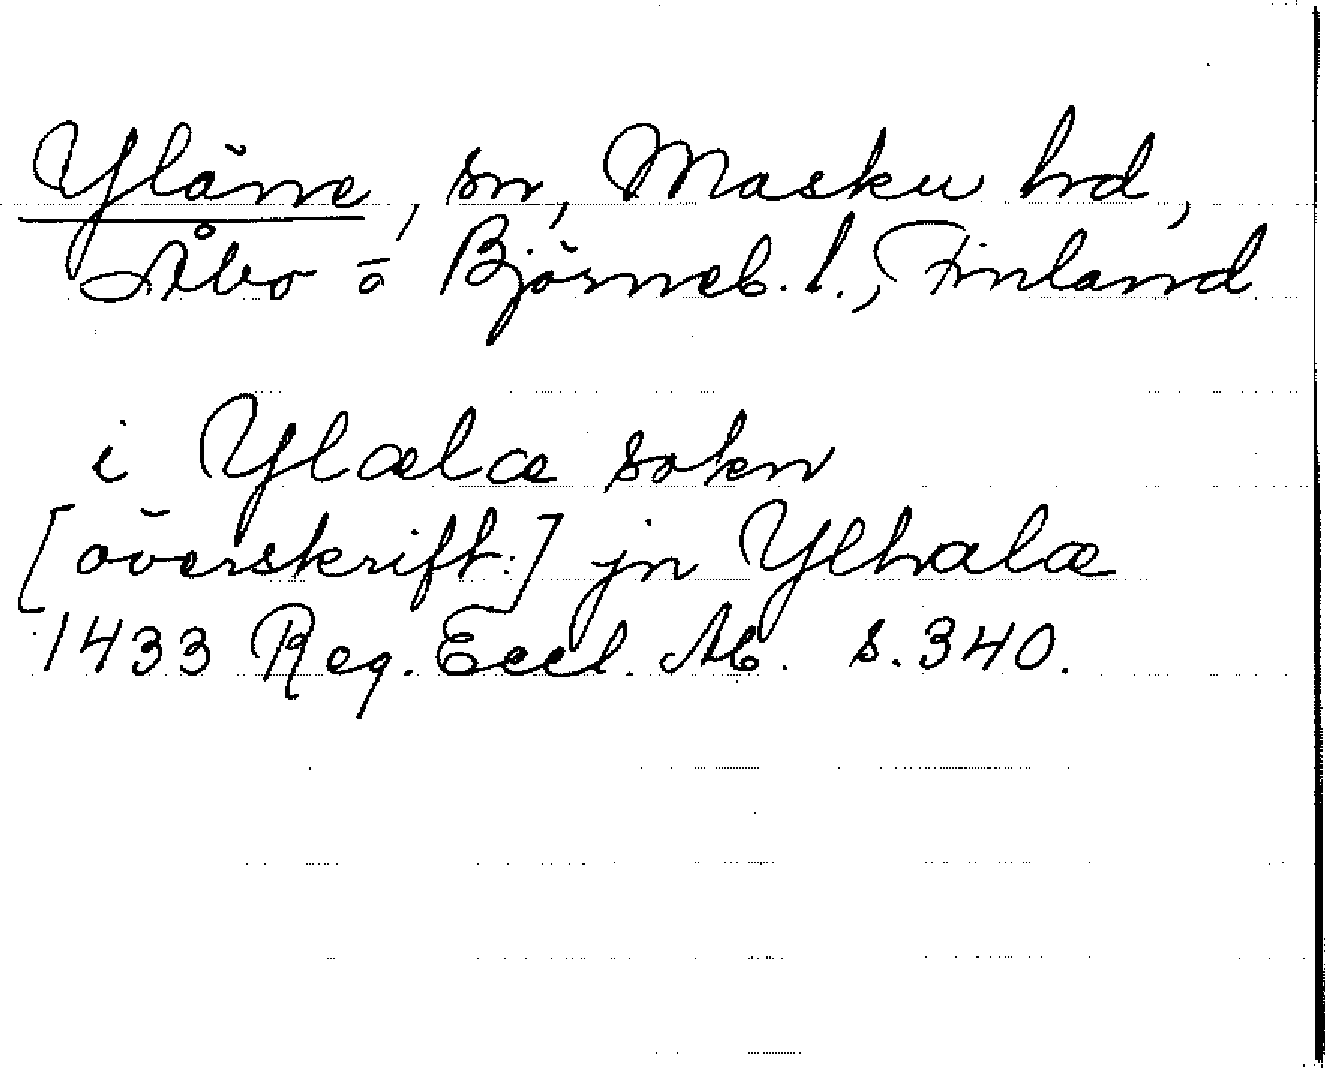 Yläne, sn, Masku hd,
Åbo o Björneb. l., Finland
i Ylælæ sokn
[överskrift:] jn Ylhælæ
1433 Reg. Eccl. Ab. s. 340.